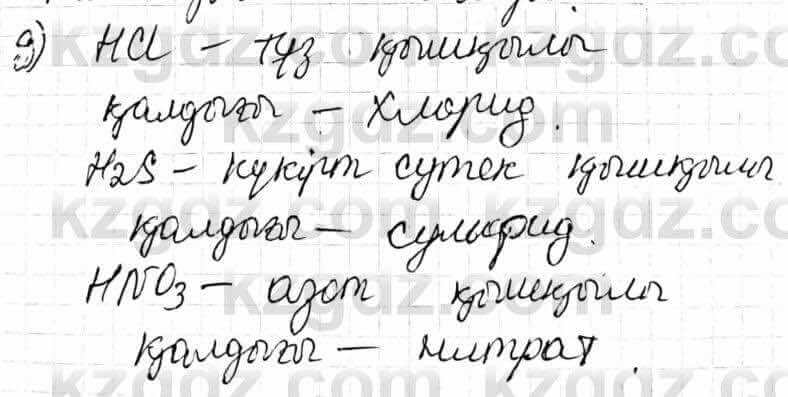 9) HCl – тұз қышқылы
қалдығы – хлорид.
H2S – күкірт сутек қышқылы
қалдығы – сульфид.
HNO3 – азот қышқылы
қалдығы – нитрат.